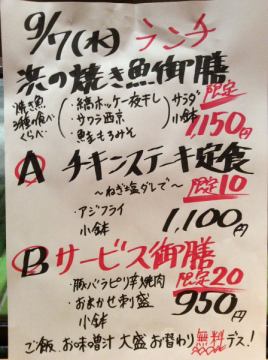 9/7(木) ランチ
浜の焼き魚御膳
焼き魚 ・縞ホッケ一夜干し サラダ 限定
3種の食べ ・サワラ西京 小鉢
くらべ ・鮭もろみそ 1,150円
A チキンステーキ定食
～ねぎ塩ダレで～ 限定10
・アジフライ
小鉢 1,100円
B サービス御膳
・豚バラピリ辛焼肉 限定20
・おまかせ刺盛 950円
小鉢
ご飯、お味噌汁 大盛お替わり 無料デス!